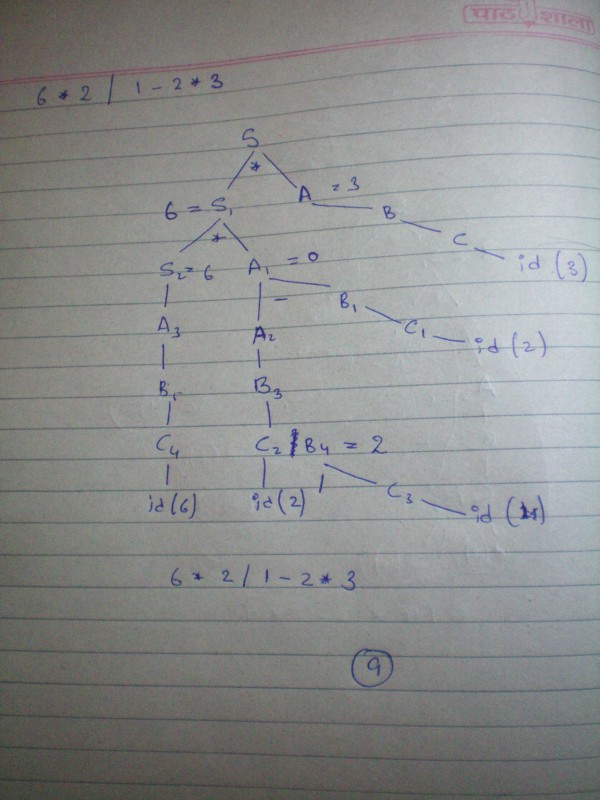 पाठशाला
6 * 2 / 1 - 2 * 3
S
*
6 = S₁ A = 3 B
* C id (3)
S₂ = 6 A₁ = 0
- B₁
A₃ A₂ C₁ id (2)
B₅ B₃
C₄ C₂ / B₄ = 2
id (6) id (2) / C₃ id (1)
6 * 2 / 1 - 2 * 3
9